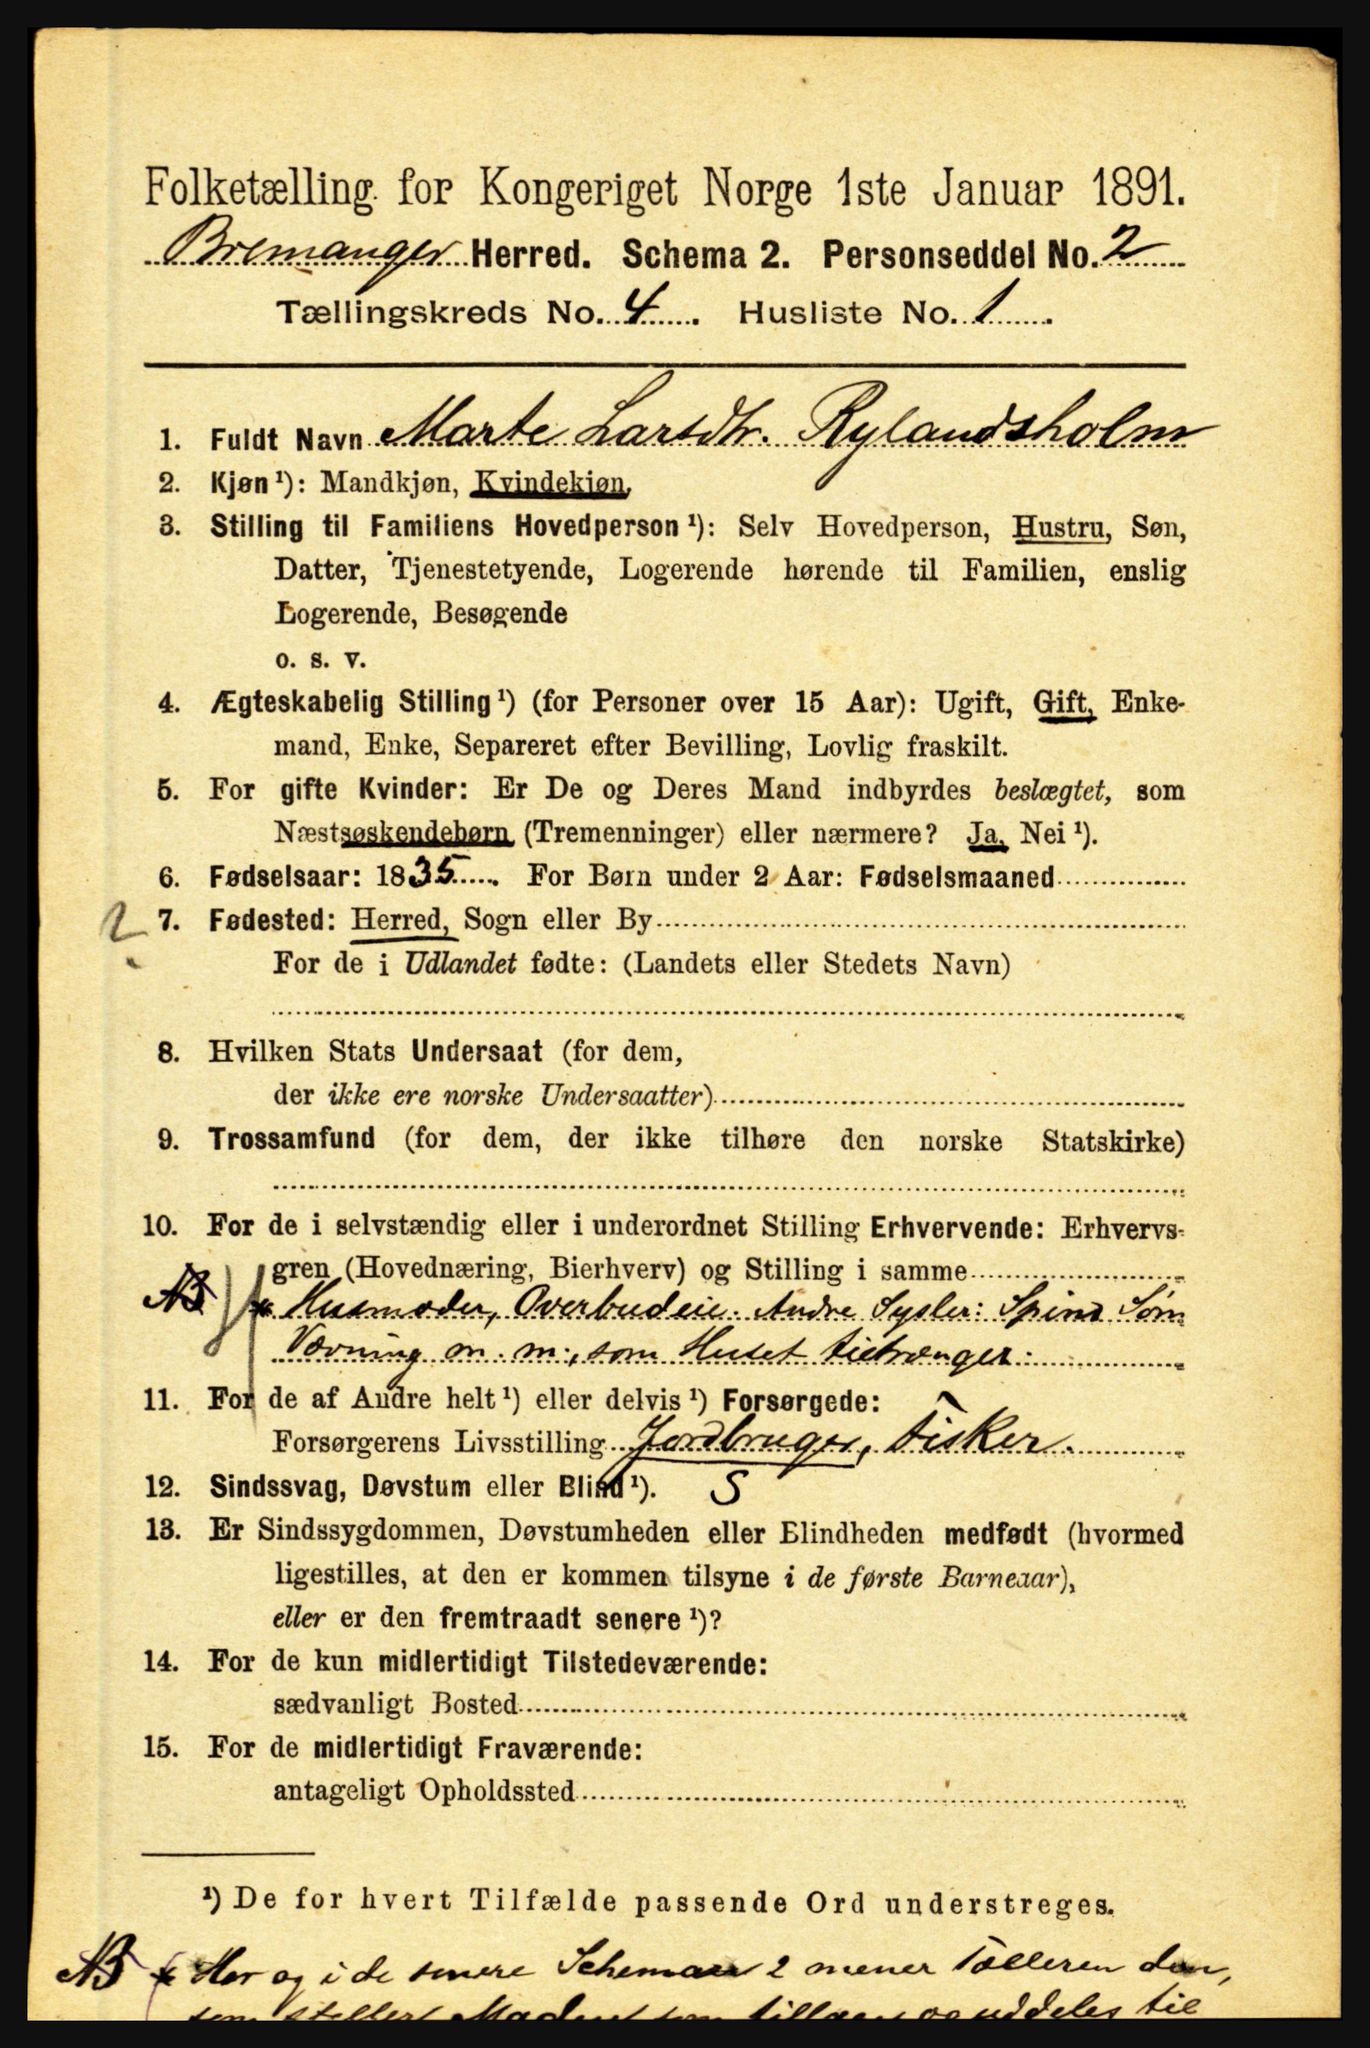 Folketælling for Kongeriget Norge 1ste Januar 1891.
Bremanger Herred. Schema 2. Personseddel No. 2
Tællingskreds No. 4. Husliste No. 1.
1. Fuldt Navn Marte Larsdtr. Rylandsholm
2. Kjøn¹): Mandkjøn, Kvindekjøn,
3. Stilling til Familiens Hovedperson¹): Selv Hovedperson, Hustru, Søn,
Datter, Tjenestetyende, Logerende hørende til Familien, enslig
Logerende, Besøgende
o. s. v.
4. Ægteskabelig Stilling¹) (for Personer over 15 Aar): Ugift, Gift, Enke-
mand, Enke, Separeret efter Bevilling, Lovlig fraskilt.
5. For gifte Kvinder: Er De og Deres Mand indbyrdes beslægtet, som
Næstsøskendebørn (Tremenninger) eller nærmere? Ja, Nei¹).
6. Fødselsaar: 1835. For Børn under 2 Aar: Fødselsmaaned
2 7. Fødested: Herred, Sogn eller By
For de i Udlandet fødte: (Landets eller Stedets Navn)
8. Hvilken Stats Undersaat (for dem,
der ikke ere norske Undersaatter)
9. Trossamfund (for dem, der ikke tilhøre den norske Statskirke)
10. For de i selvstændig eller i underordnet Stilling Erhvervende: Erhvervs-
gren (Hovednæring, Bierhverv) og Stilling i samme
NB * Husmoder, Overbudeie. Andre Sysler: Spind Søm
Vævning m. m., som Huset tiltrænger.
11. For de af Andre helt¹) eller delvis¹) Forsørgede:
Forsørgerens Livsstilling Jordbruger, Fisker.
12. Sindssvag, Døvstum eller Blind¹). S
13. Er Sindssygdommen, Døvstumheden eller Blindheden medfødt (hvormed
ligestilles, at den er kommen tilsyne i de første Barneaar),
eller er den fremtraadt senere¹)?
14. For de kun midlertidigt Tilstedeværende:
sædvanligt Bosted
15. For de midlertidigt Fraværende:
antageligt Opholdssted
¹) De for hvert Tilfælde passende Ord understreges.
NB * Her og i de senere Schemaer 2 mener Tælleren den,
som steller Maden som tillages og uddeles til